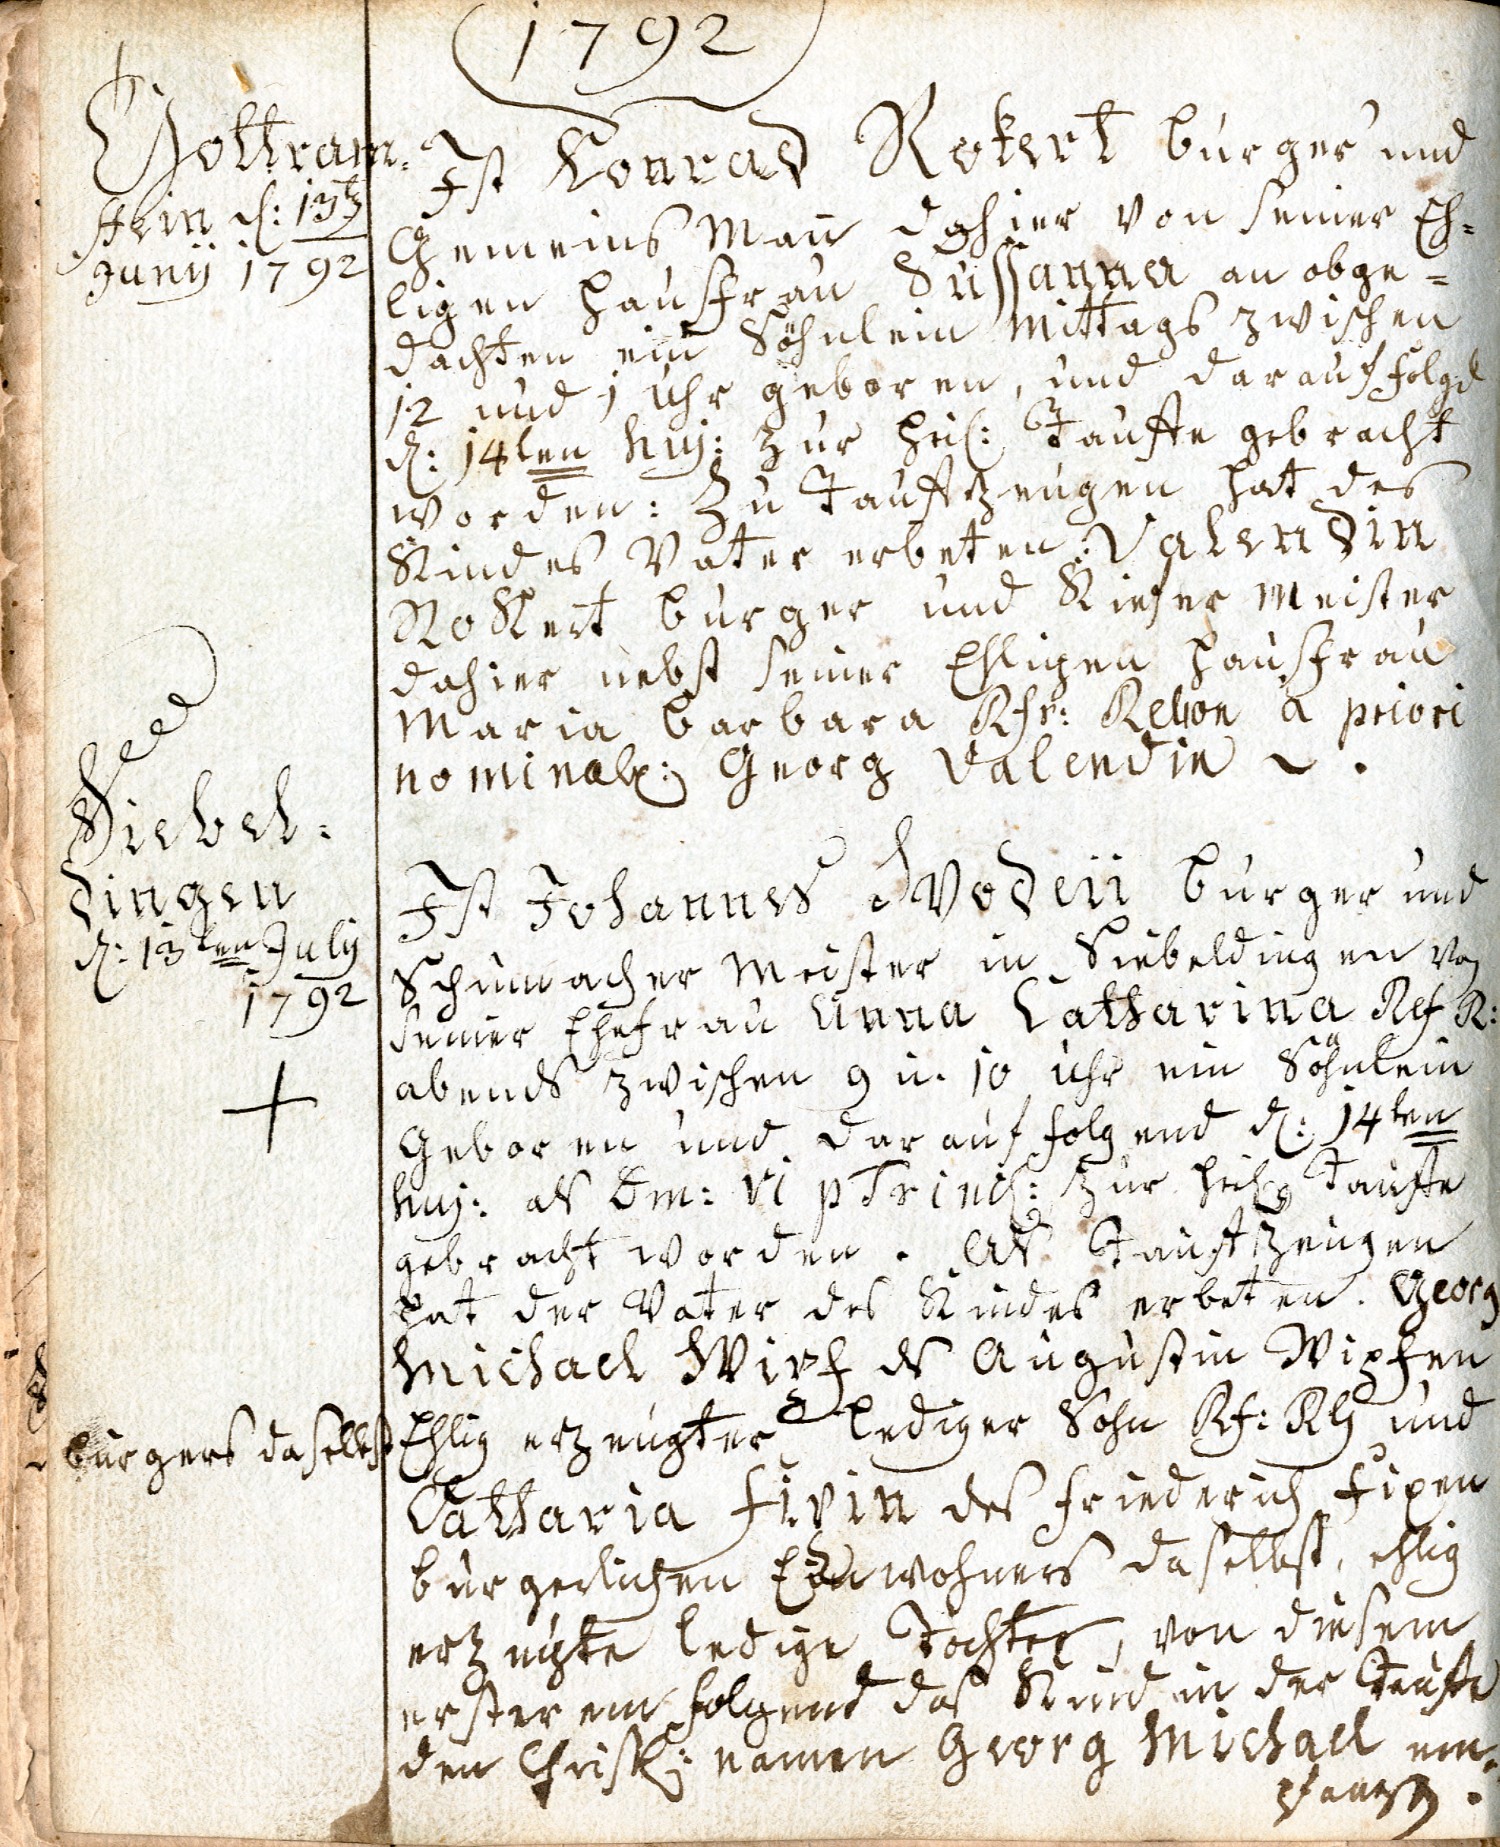 1792
Gottram=
stein d: 13t
Junÿ 1792
Ist Konrad Rokert burger und
Gemeins Man dahier von seiner Eh=
ligen Hausfrau Sussanna an obge=
dachten ein Söhnlein Mittags zwischen
12 und 1 Uhr geboren, und darauf folgd
d: 14ten huj: zur heil: Tauffe gebracht
worden: Zu Taufzeugen hat des
Kindes Vater erbeten: Valendin
Rokert burger und Kiefer Meister
dahier nebst seiner Ehligen Hausfrau
Maria barbara Rfr: Relion a priori
nominatx: Georg Valendin.
Siebel=
dingen
d: 13ten July
1792
Ist Johannes burger und
Schumacher Meister in Siebeldingen von
seiner Ehefrau Anna Catharina Ref R:
abends zwischen 9 u. 10 Uhr ein Söhnlein
Geboren und darauf folgend d: 14ten
huj: als Dm: VI p Trinit: zur heil: Tauffe
gebracht worden. Als Taufzeugen
hat der Vater des Kindes erbeten. Georg
Michael Wipf des Augustin Wipfen
burgers daselbst
Ehlig erzeugter lediger Sohn Rf: Rl und
Catharia des Friederich
burgerlichen Einwohners daselbst, ehlig
erzeugte ledige Tochter, von diesem
ersterem folgend das Kind in der Tauffe
den Christl: namen Georg Michael em=
pfangen.